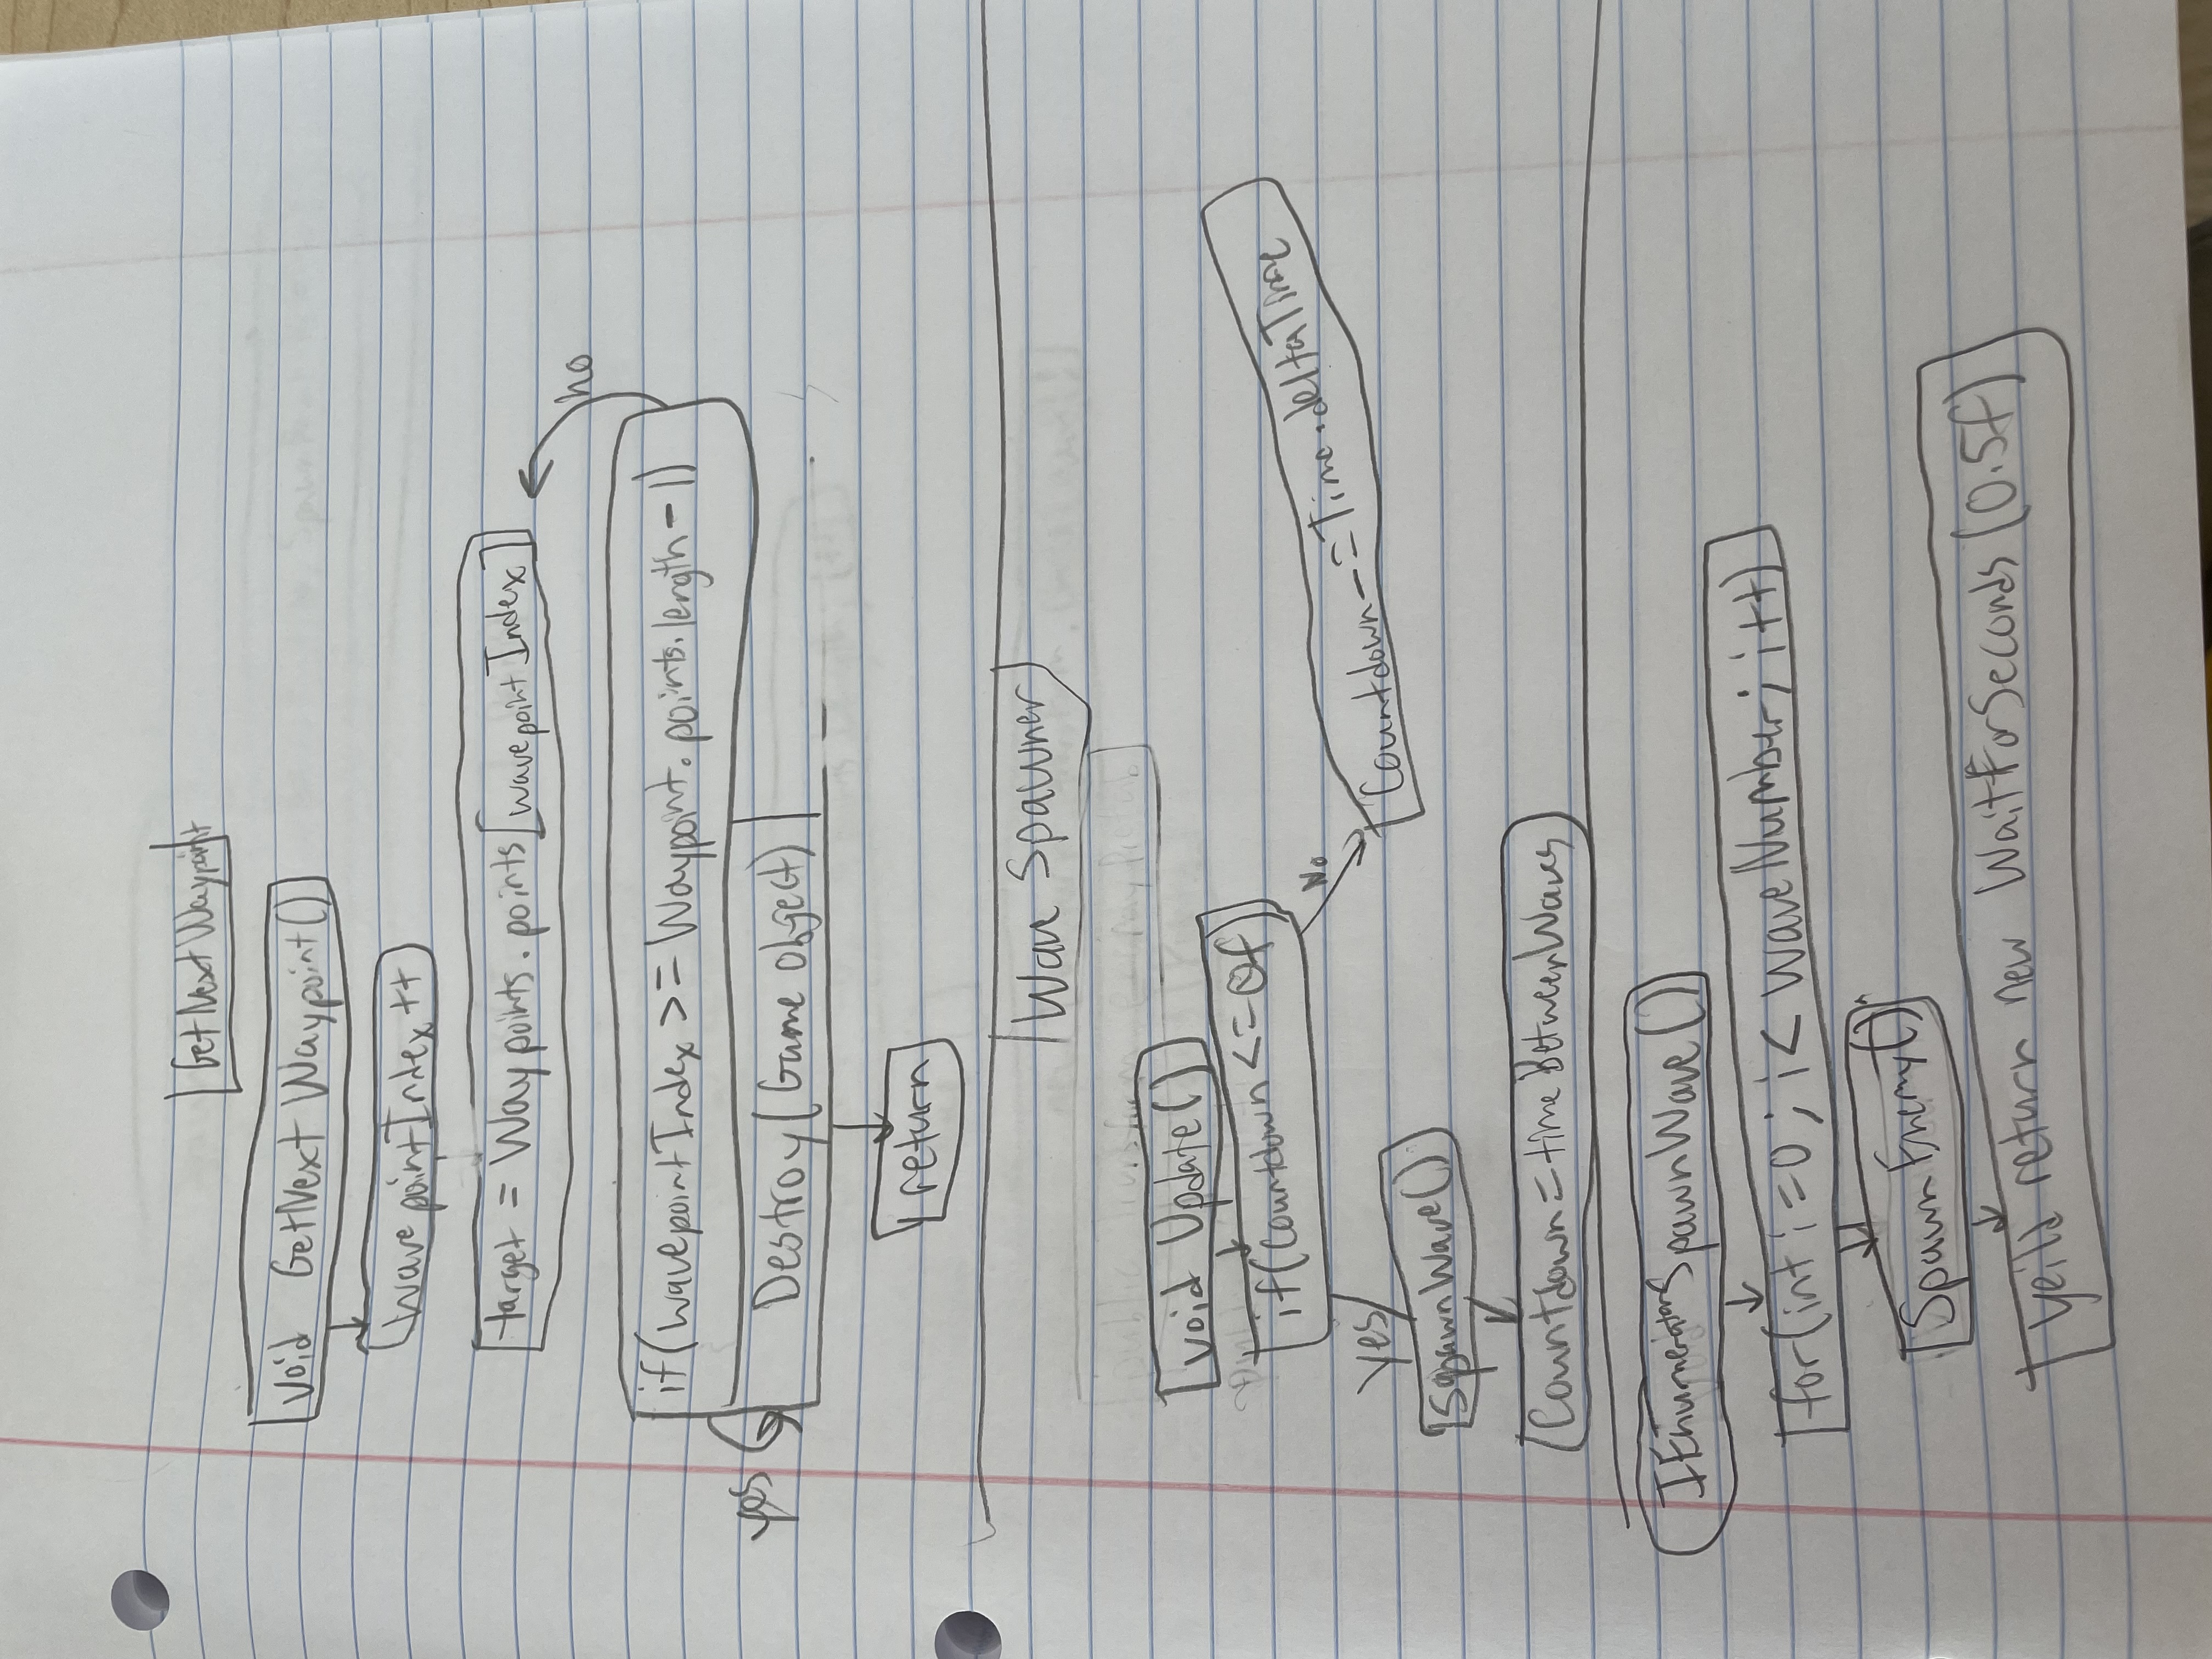 GetNextWaypoint
void GetNextWaypoint()
wavepointIndex++
target = Waypoints.points[wavepointIndex]
no
if(wavepointIndex >= Waypoint.points.length-1)
yes
Destroy(Game object)
return
Wave Spawner
void Update()
if(Countdown <= 0f)
No
Countdown -= Time.deltaTime
yes
SpawnWave()
Countdown = timeBetweenWaves
IEnumerator SpawnWave()
for(int i=0; i< waveNumber; i++)
SpawnEnemy()
yeild return new WaitForSeconds(0.5f)